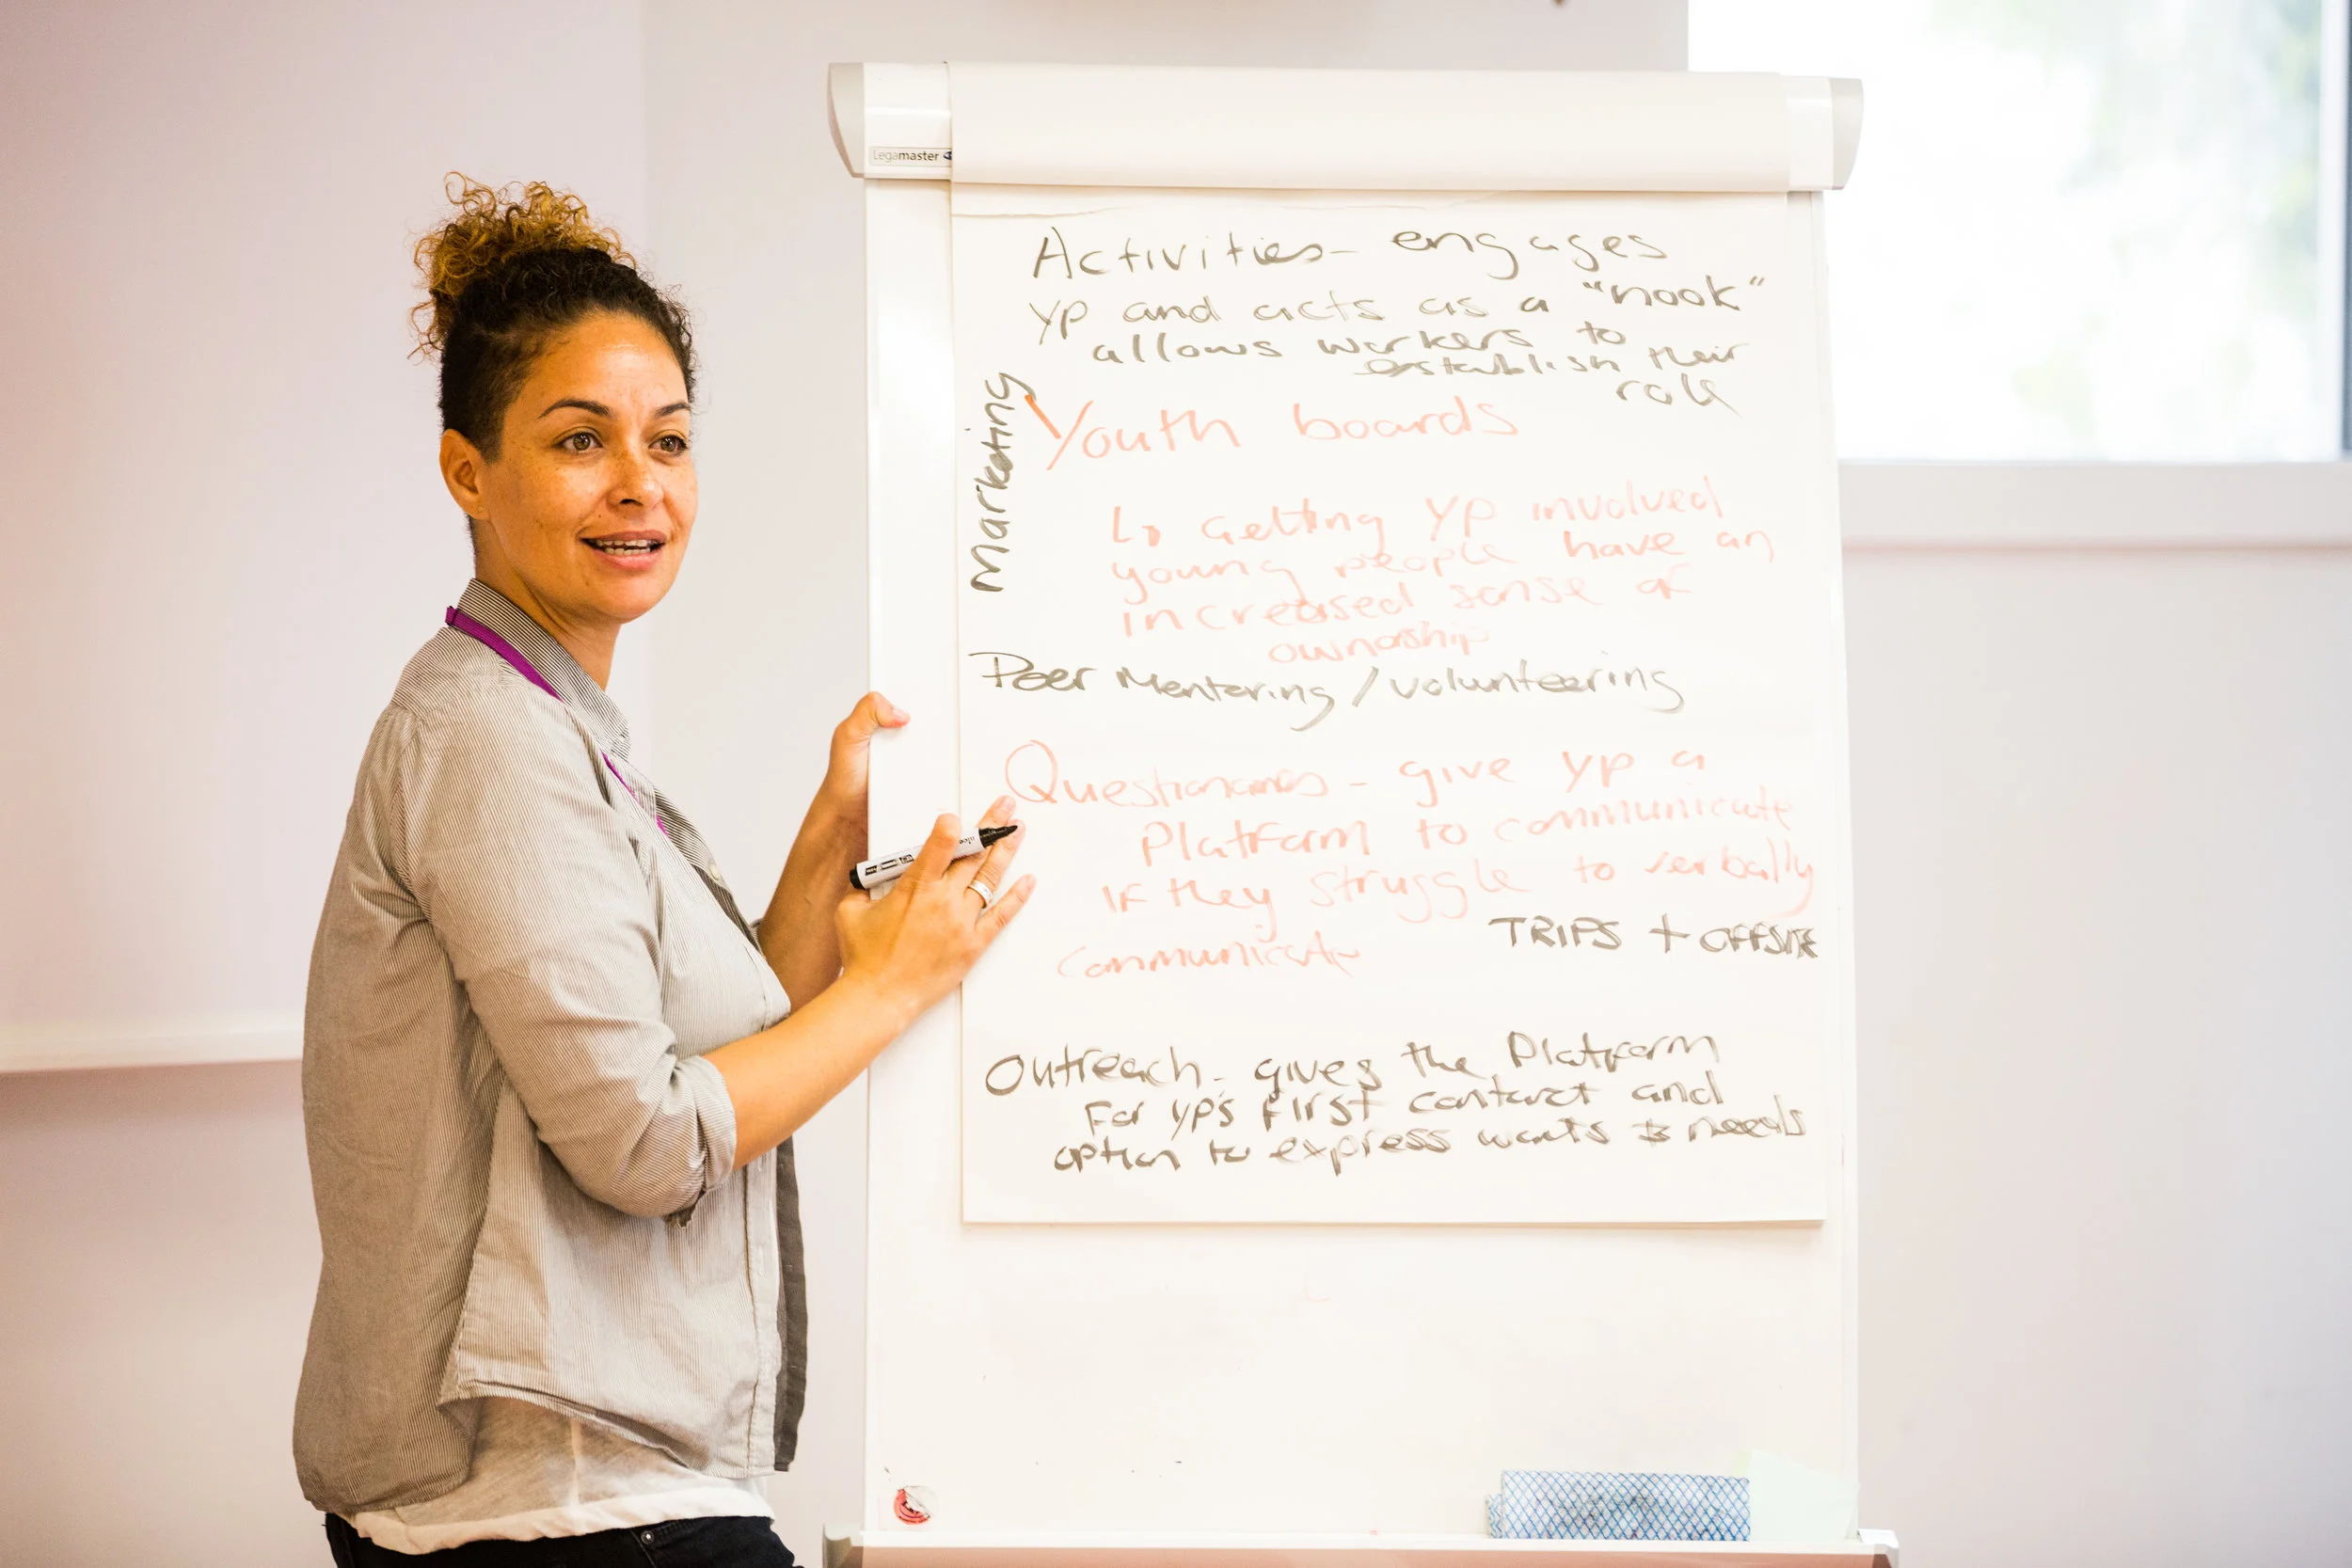 Legamaster
Activities - engages
YP and acts as a "nook"
allows workers to
establish their
role
Marketing
Youth boards
↳ Getting YP involved
young people have an
increased sense of
ownership
Peer Mentoring / volunteering
Questionnaires - give YP a
Platform to communicate
IF they struggle to verbally
communicate
TRIPS + OFFSITE
Outreach - gives the Platform
For YP's First contact and
option to express wants & needs